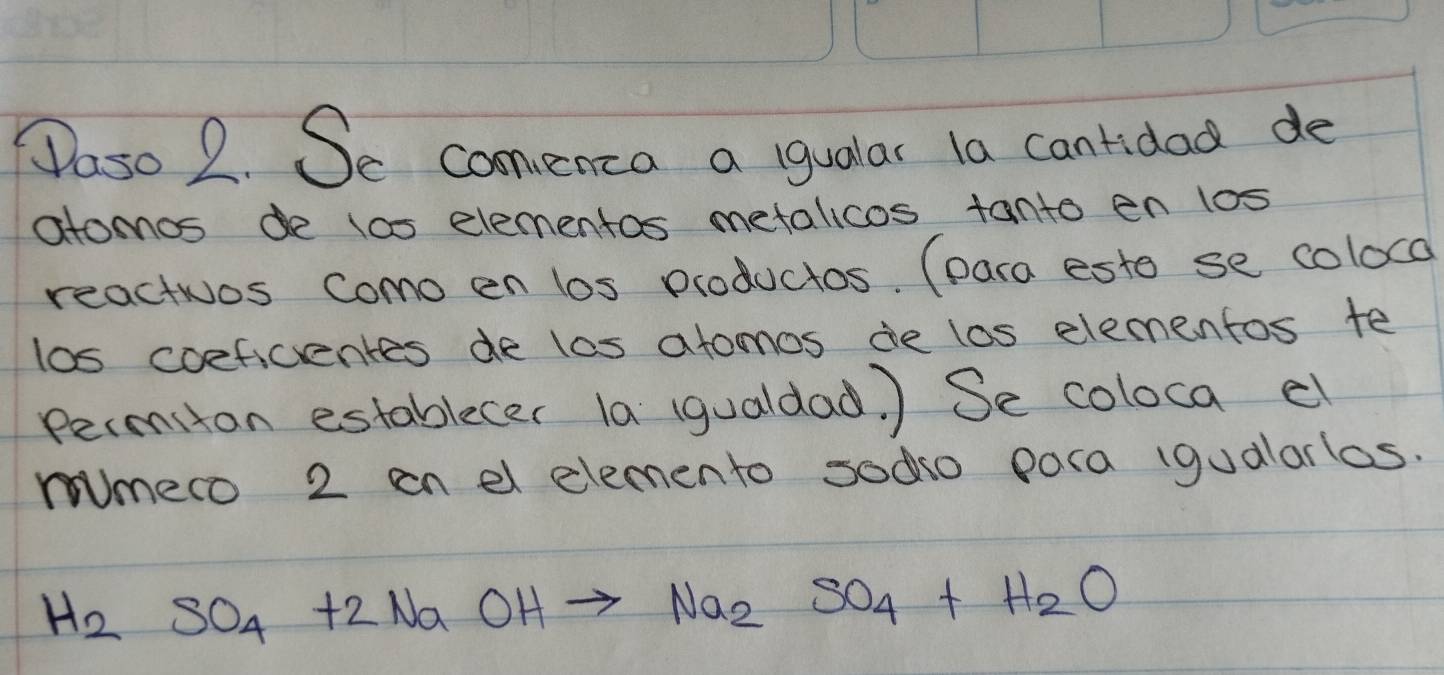 Paso 2. Se comienza a igualar la cantidad de
atomos de los elementos metalicos tanto en los
reactivos como en los productos. (para esto se coloca
los coeficientes de los atomos de los elementos te
permitan establecer la igualdad.) Se coloca el
numero 2 en el elemento sodio para igualarlos.
H2 SO4 +2 Na OH → Na2 SO4 + H2O